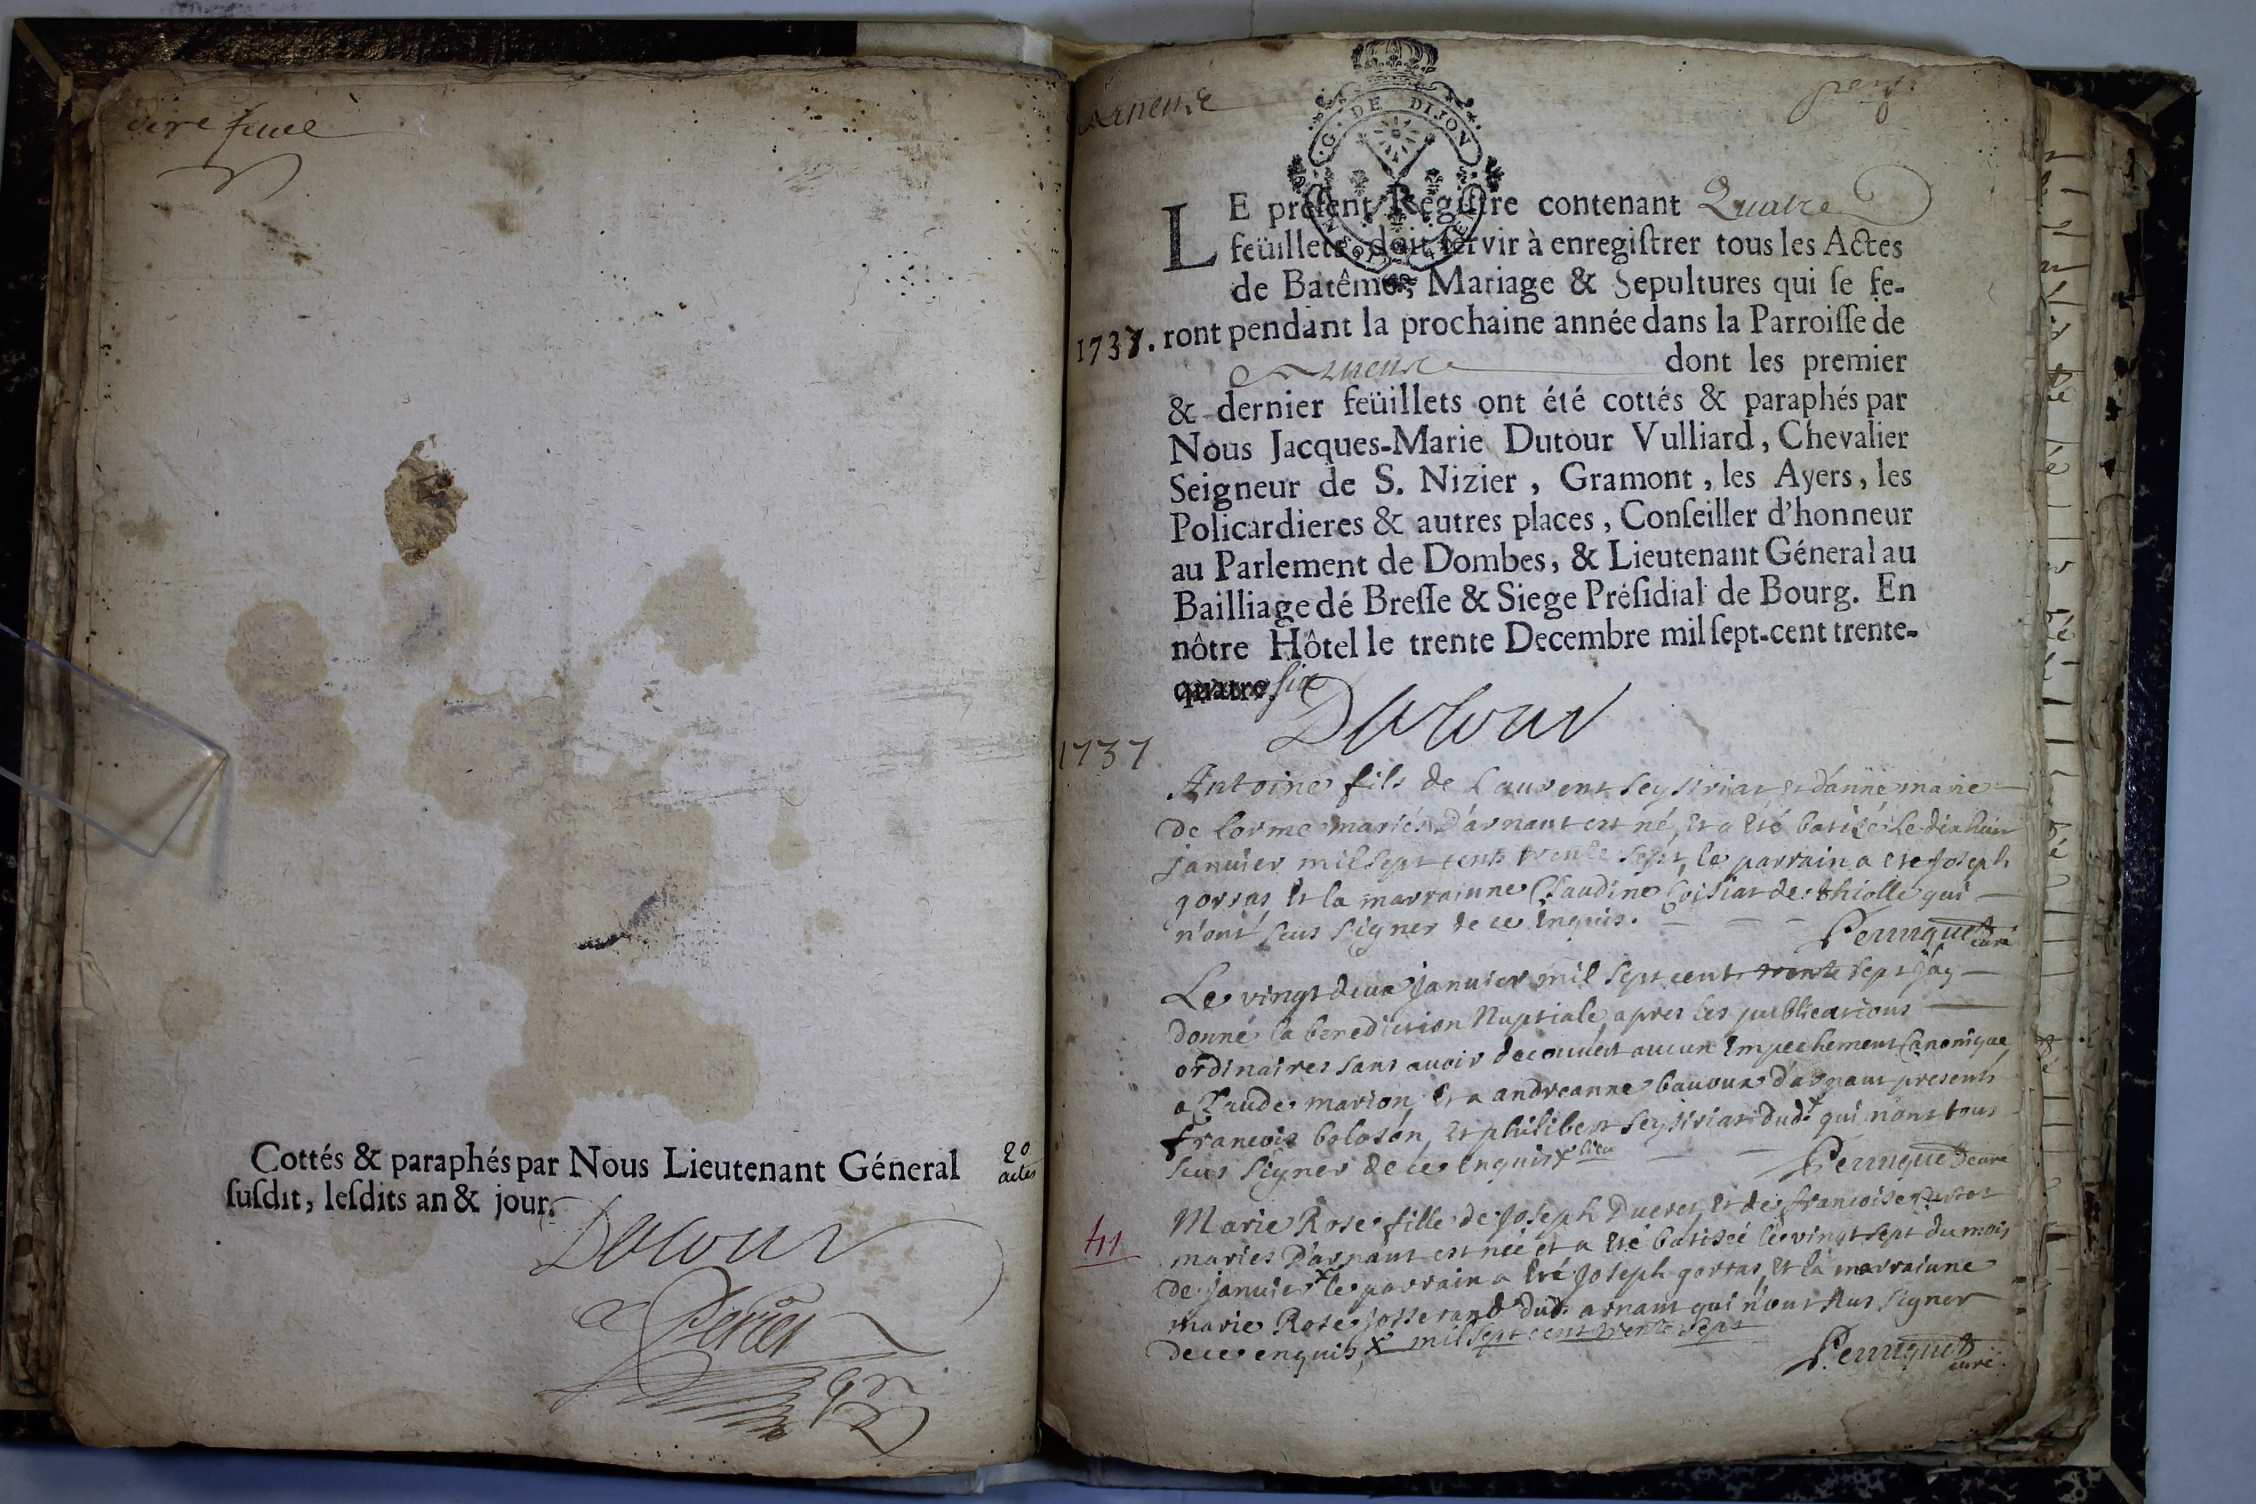 feuille
Cottés & paraphés par Nous Lieutenant Géneral
susdit, lesdits an & jour.
20
actes
Dutour
Perier
G. DE DIJON
LE present Registre contenant Quatre
feüillets doit servir à enregistrer tous les Actes
de Batême, Mariage & Sepultures qui se fe-
1737. ront pendant la prochaine année dans la Parroisse de
dont les premier
& dernier feüillets ont été cottés & paraphés par
Nous Jacques-Marie Dutour Vulliard, Chevalier
Seigneur de S. Nizier, Gramont, les Ayers, les
Policardieres & autres places, Conseiller d'honneur
au Parlement de Dombes, & Lieutenant Géneral au
Bailliage dé Bresse & Siege Présidial de Bourg. En
nôtre Hôtel le trente Decembre mil sept-cent trente-
quatre six
Dutour
1737
Antoine fils de Laurent Seysiriat et d'anne marie
de lorme mariés d'arnant est né, et a eté batisé le dix huit
janvier mil sept cent trente sept, le parrain a ete joseph
gorras et la marrainne Claudine de thiolle qui
n'ont seus signer de ce enquis.
Perruquet curé
Le vingt deux janvier mil sept cent trente sept j'ay
donné la benediction Nuptiale apres les publications
ordinaires sans avoir decouvert aucun Empechement Canonique
a Claude marion, et a andreanne bavoux d'arnant presents
francois boloson, et philibert Seysiriat dud. x qui n'ont tous
seus signer de ce enquis x lieu
Perruquet curé
Marie Rose fille de joseph Ducret, et de francoise
mariés D'arnant est née et a eté batisée le vingt sept du mois
de janvier x le parrain a eté joseph gorras, et la marrainne
marie Rose josserand dud. arnant qui n'ont seus signer
de ce enquis, x mil sept cent trente sept
Perruquet curé